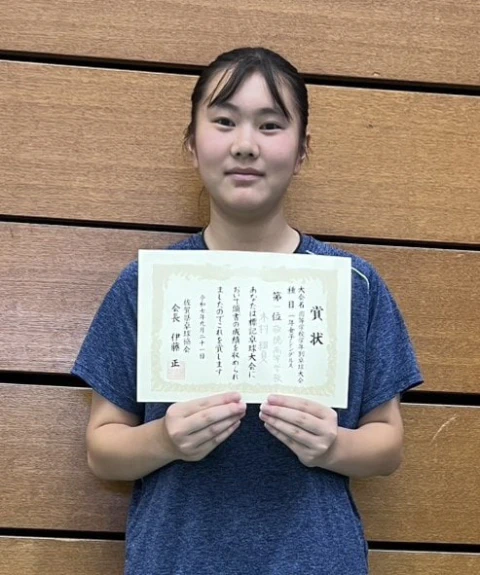 賞状
大会名 高等学校学年別卓球大会
種目 一年女子シングルス
第 位
あなたは標記卓球大会に
おいて頭書の成績を収められ
ましたのでこれを賞します
令和七年九月二十一日
佐賀県卓球協会
会長 伊藤 正